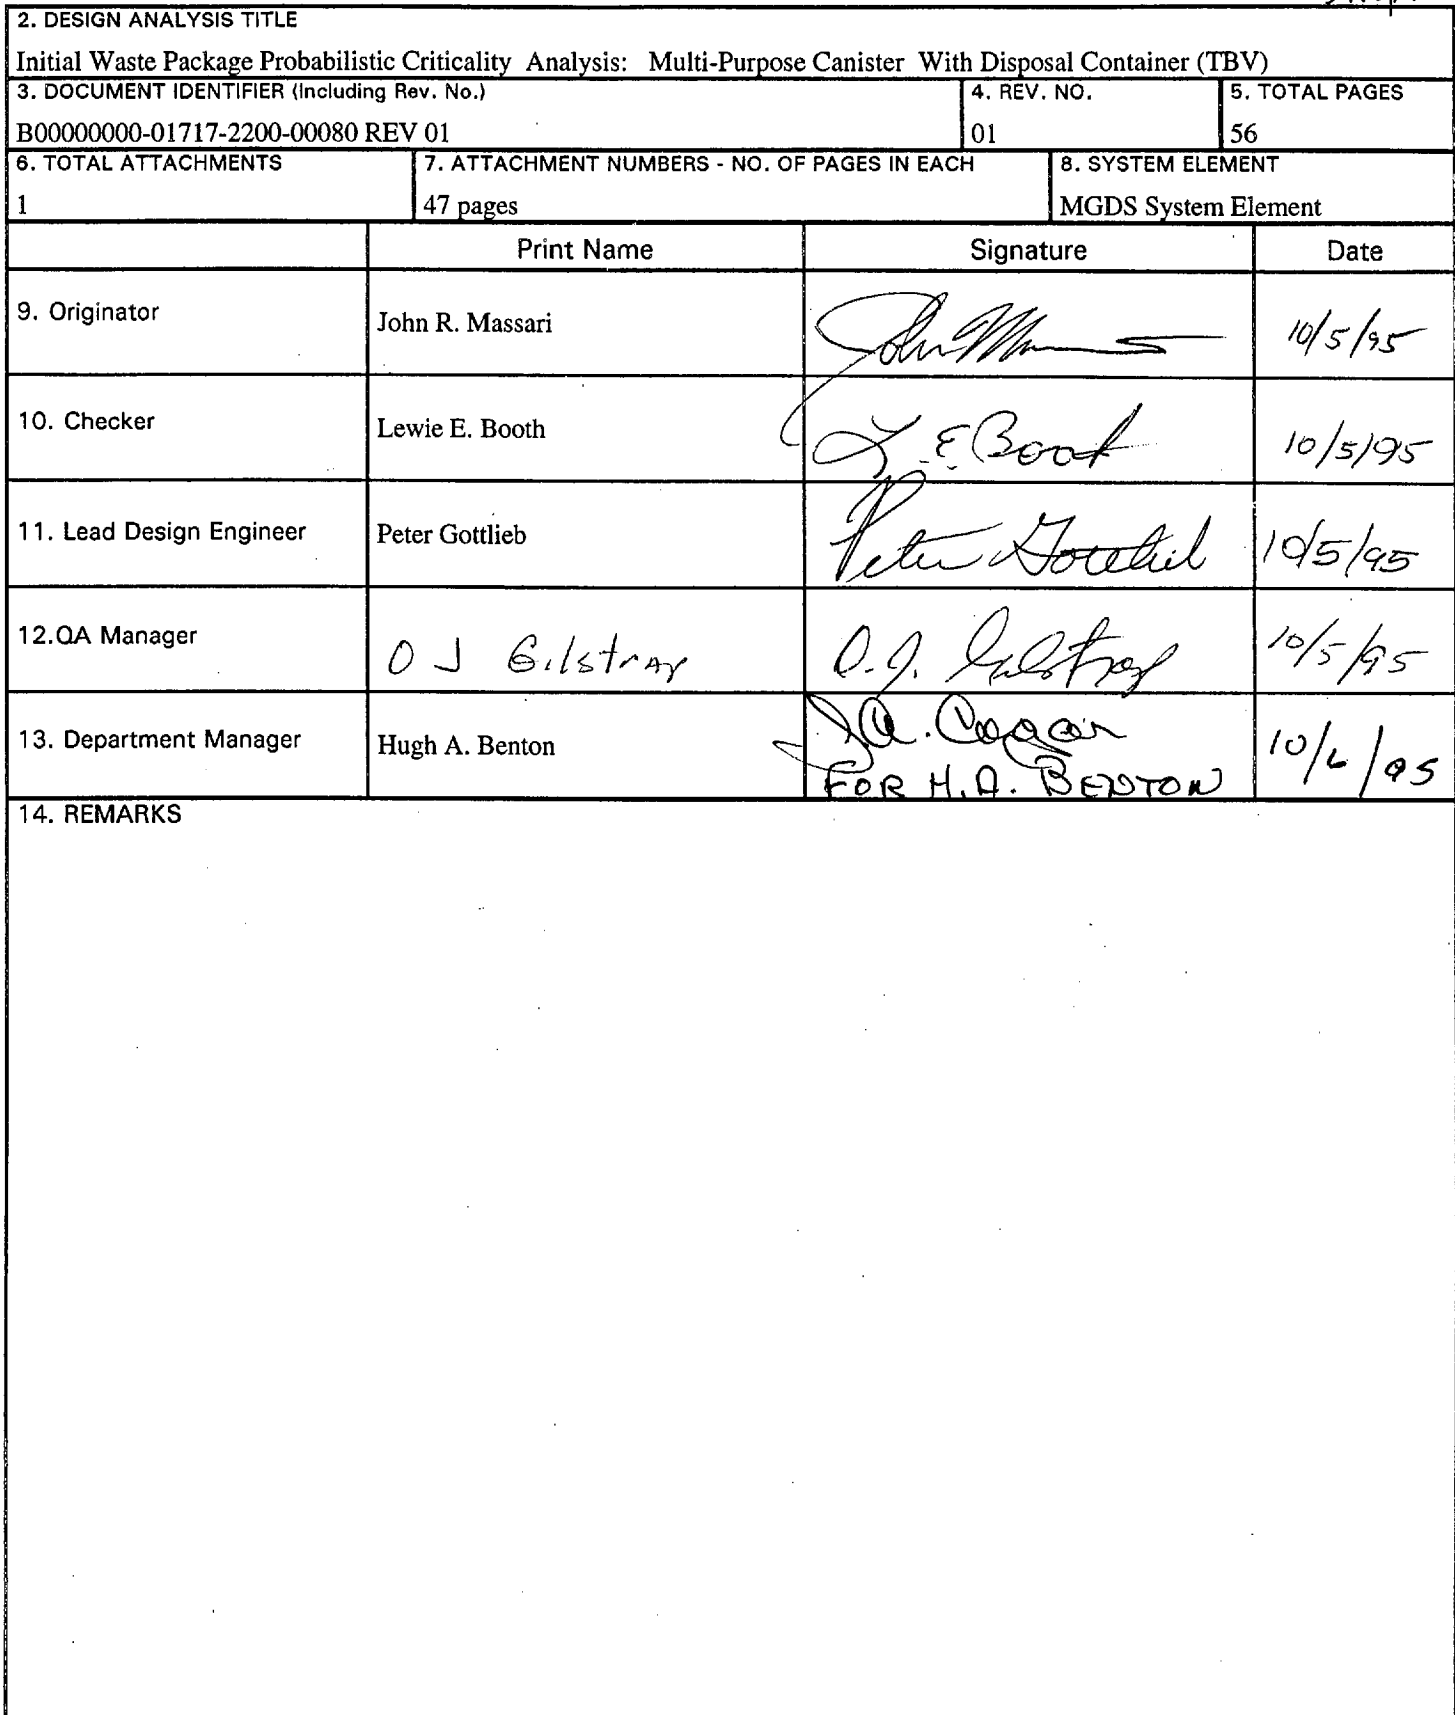 2. DESIGN ANALYSIS TITLE
Initial Waste Package Probabilistic Criticality Analysis: Multi-Purpose Canister With Disposal Container (TBV)
3. DOCUMENT IDENTIFIER (Including Rev. No.) 4. REV. NO. 5. TOTAL PAGES
B00000000-01717-2200-00080 REV 01 01 56
6. TOTAL ATTACHMENTS 7. ATTACHMENT NUMBERS - NO. OF PAGES IN EACH 8. SYSTEM ELEMENT
1 47 pages MGDS System Element
Print Name Signature Date
9. Originator John R. Massari John 10/5/95
10. Checker Lewie E. Booth L E Booth 10/5/95
11. Lead Design Engineer Peter Gottlieb Peter Gottlieb 10/5/95
12.QA Manager O J Gilstrap O.J. Gilstrap 10/5/95
13. Department Manager Hugh A. Benton J.A. Cogar 10/6/95
FOR H.A. BENTON
14. REMARKS